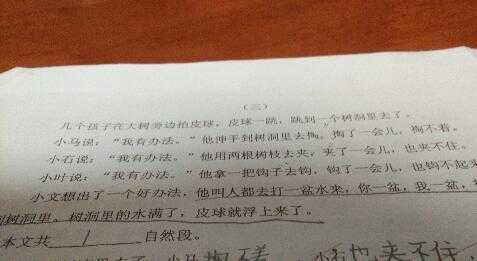 （三）
几个孩子在大树旁边拍皮球，皮球一跳，跳到一个树洞里去了。
小马说：“我有办法。”他伸手到树洞里去掏，掏了一会儿，掏不着。
小石说：“我有办法。”他用两根树枝去夹，夹了一会儿，也夹不住。
小叶说：“我有办法。”他拿一把钩子去钩，钩了一会儿，也钩不起来
小文想出了一个好办法，他叫人都去打一盆水来，你一盆，我一盆，
到树洞里。树洞里的水满了，皮球就浮上来了。
本文共 1 自然段。
小马掏 小石也夹不住，